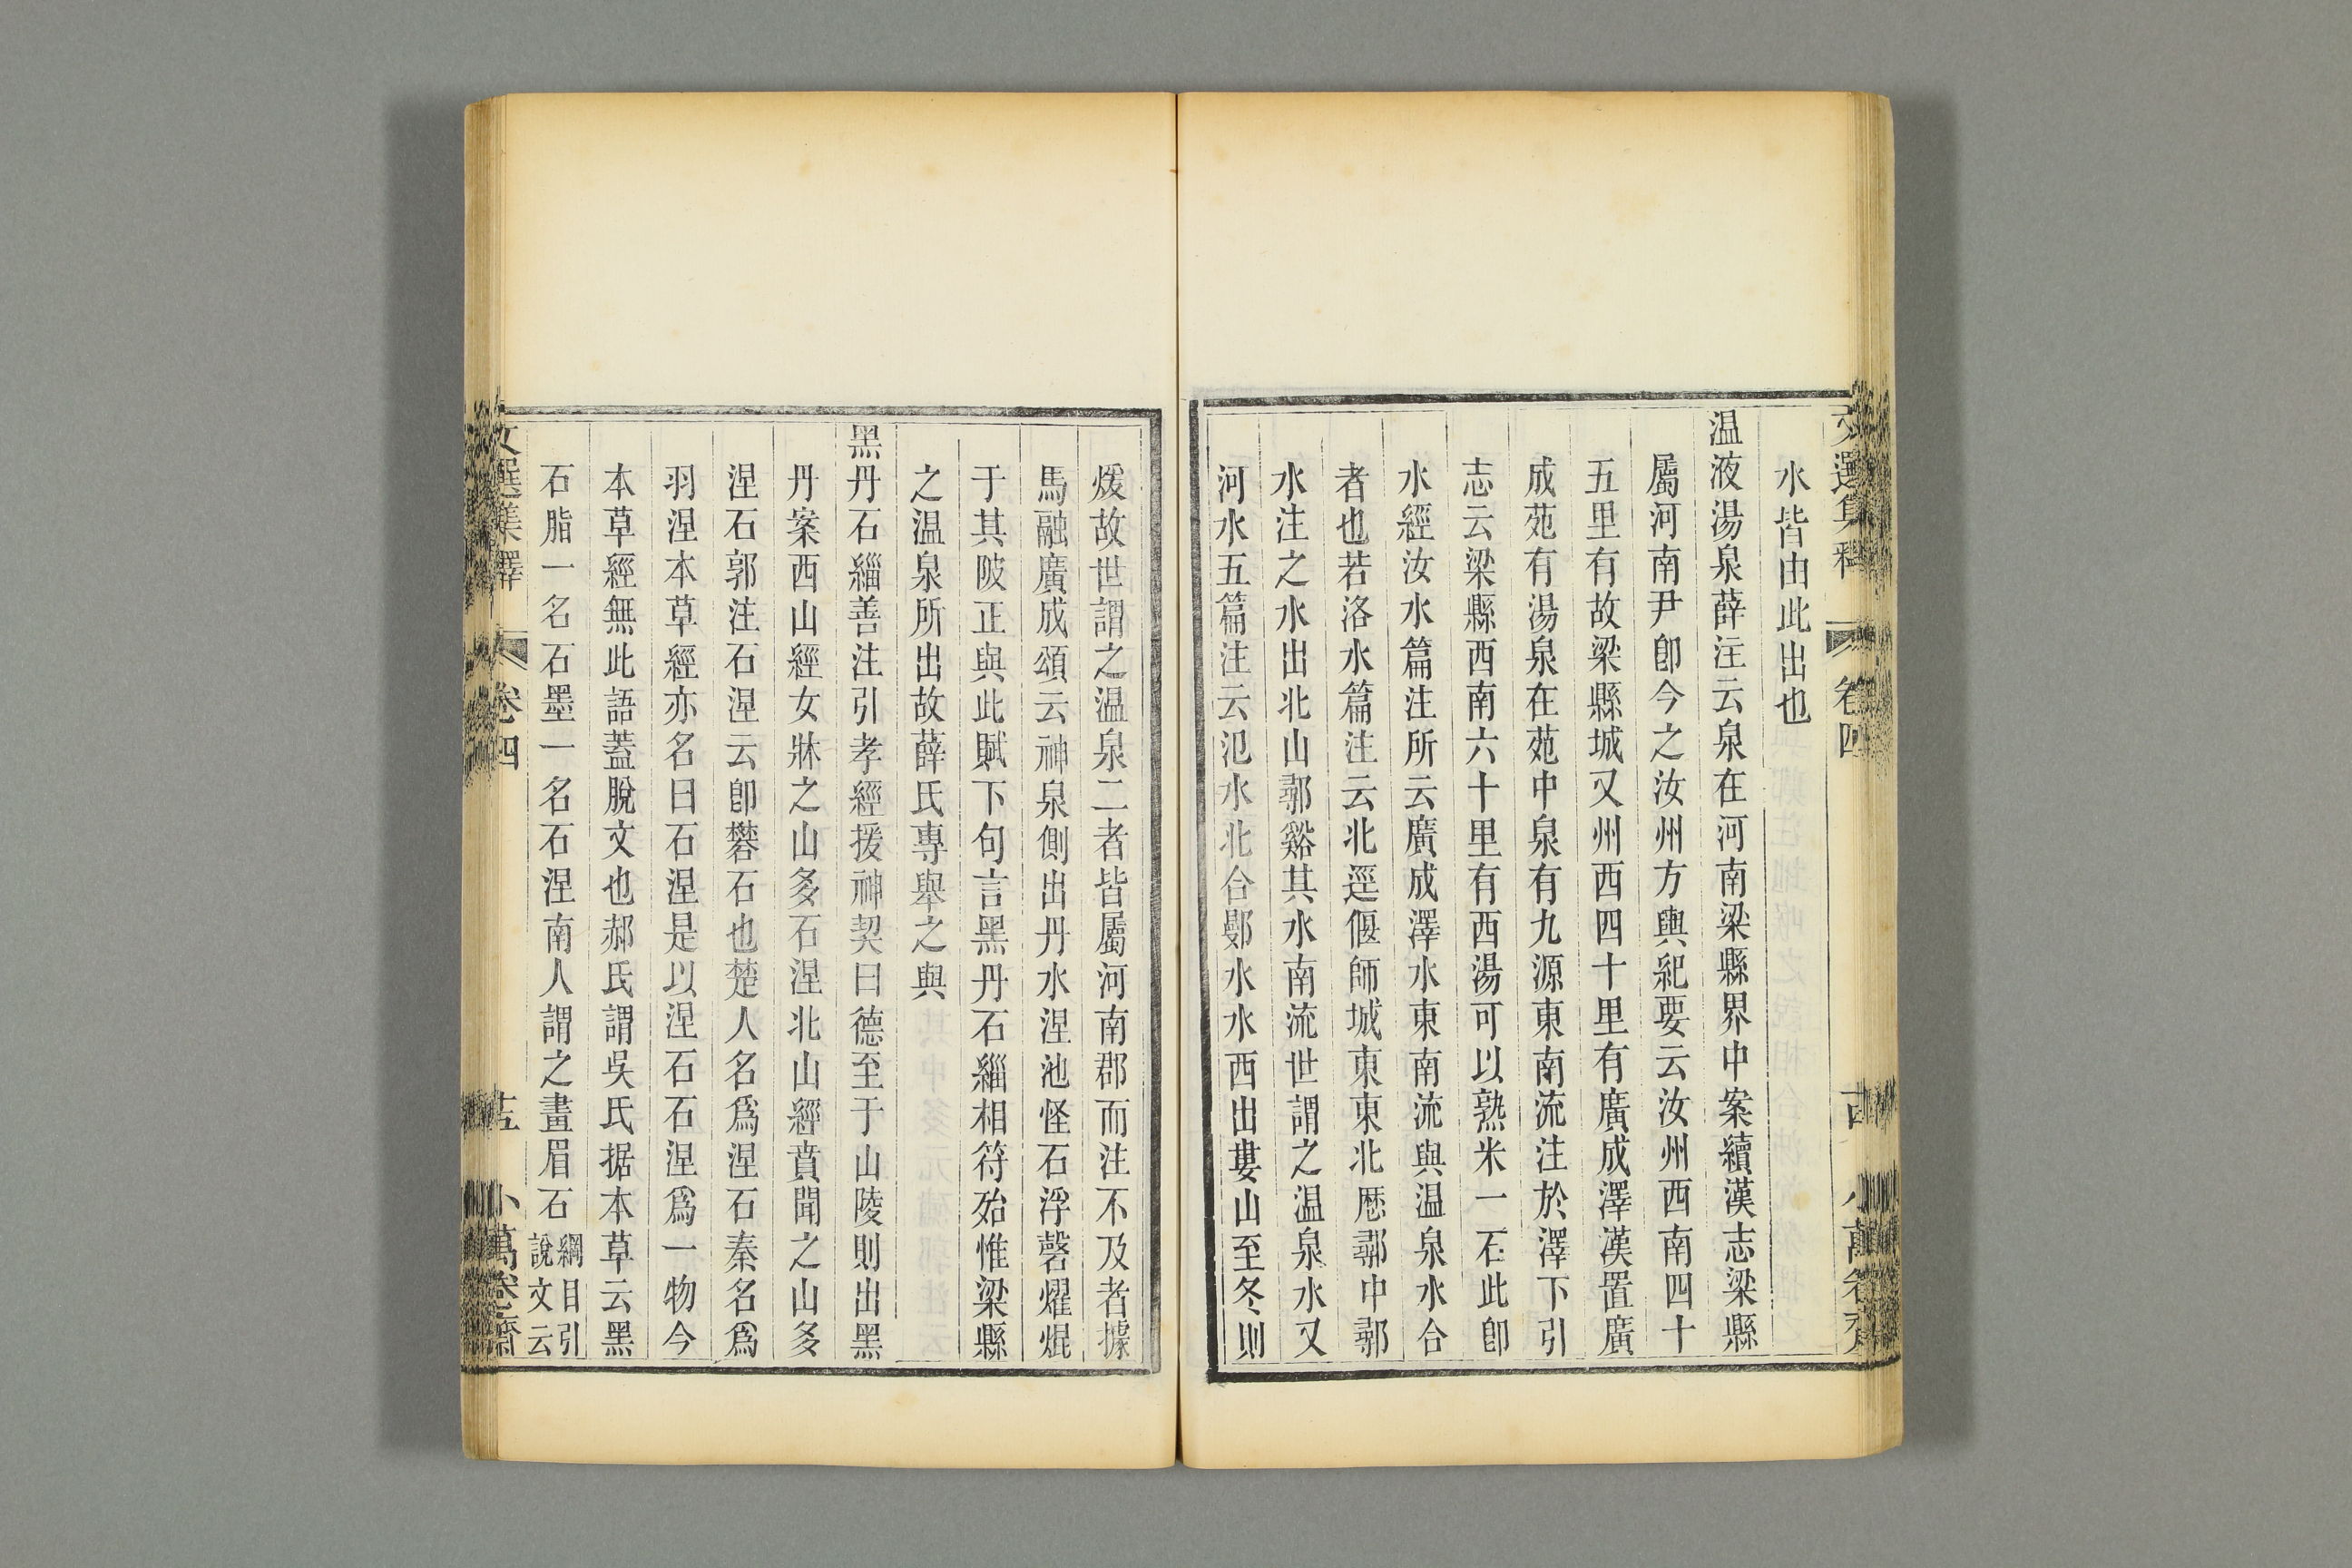 文選集釋 卷四 古 小萬卷齋
水皆由此出也
温液湯泉薛注云泉在河南梁縣界中案續漢志梁縣
屬河南尹卽今之汝州方輿紀要云汝州西南四十
五里有故梁縣城又州西四十里有廣成澤漢置廣
成苑有湯泉在苑中泉有九源東南流注於澤下引
志云梁縣西南六十里有西湯可以熟米一石此卽
水經汝水篇注所云廣成澤水東南流與温泉水合
者也若洛水篇注云北逕偃師城東東北歷鄩中鄩
水注之水出北山鄩谿其水南流世謂之温泉水又
河水五篇注云汜水北合鄤水水西出婁山至冬則
煖故世謂之温泉二者皆屬河南郡而注不及者據
馬融廣成頌云神泉側出丹水涅池怪石浮磬燿焜
于其陂正與此賦下句言黑丹石緇相符殆惟梁縣
之温泉所出故薛氏專舉之與
黑丹石緇善注引孝經援神契曰德至于山陵則出黑
丹案西山經女牀之山多石涅北山經賁聞之山多
涅石郭注石涅云卽礬石也楚人名爲涅石秦名爲
羽涅本草經亦名曰石涅是以涅石石涅爲一物今
本草經無此語蓋脫文也郝氏謂吳氏据本草云黑
石脂一名石墨一名石涅南人謂之畫眉石綱目引
說文云
文選集釋 卷四 十五 小萬卷齋